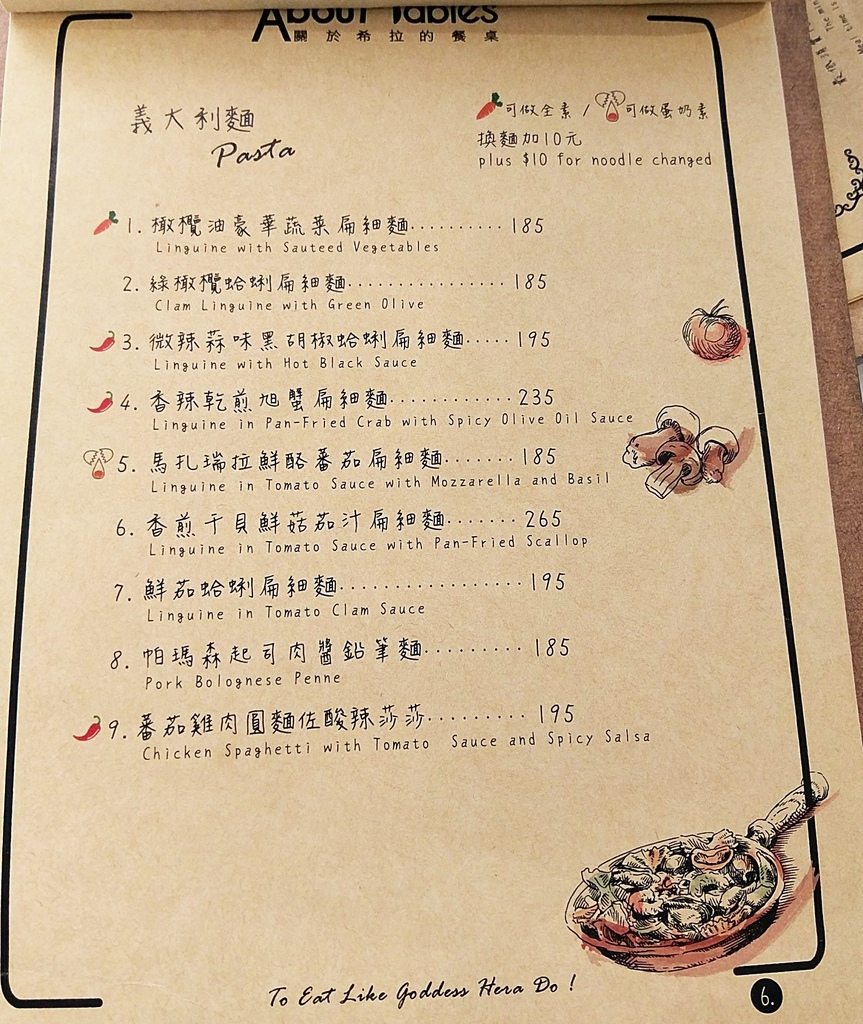 About Tables
關於希拉的餐桌
義大利麵
Pasta
可做全素 / 可做蛋奶素
換麵加10元
plus $10 for noodle changed
1. 橄欖油豪華蔬菜扁細麵.......... 185
Linguine with Sauteed Vegetables
2. 綠橄欖蛤蜊扁細麵................ 185
Clam Linguine with Green Olive
3. 微辣蒜味黑胡椒蛤蜊扁細麵..... 195
Linguine with Hot Black Sauce
4. 香辣乾煎旭蟹扁細麵............ 235
Linguine in Pan-Fried Crab with Spicy Olive Oil Sauce
5. 馬扎瑞拉鮮酪蕃茄扁細麵....... 185
Linguine in Tomato Sauce with Mozzarella and Basil
6. 香煎干貝鮮菇茄汁扁細麵....... 265
Linguine in Tomato Sauce with Pan-Fried Scallop
7. 鮮茄蛤蜊扁細麵.................. 195
Linguine in Tomato Clam Sauce
8. 帕瑪森起司肉醬鉛筆麵.......... 185
Pork Bolognese Penne
9. 蕃茄雞肉圓麵佐酸辣莎莎......... 195
Chicken Spaghetti with Tomato Sauce and Spicy Salsa
To Eat Like Goddess Hera Do !
6.